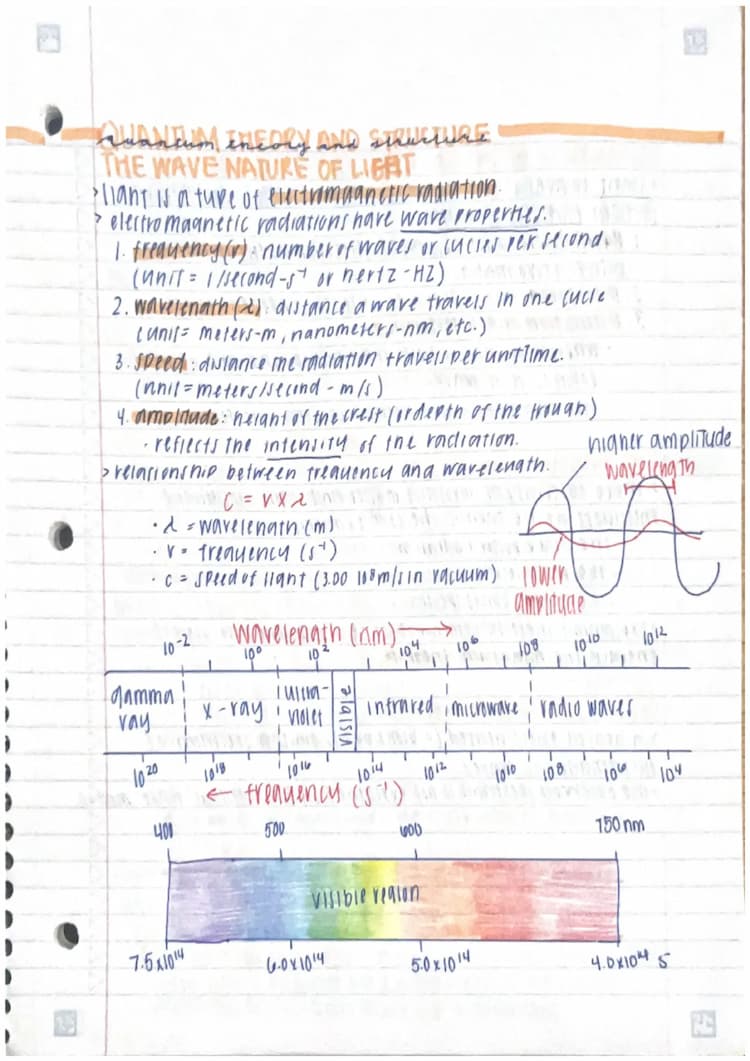 QUANTUM THEORY AND STRUCTURE
quantum theory and structure
THE WAVE NATURE OF LIGHT
> light is a type of electromagnetic radiation.
> electromagnetic radiations have wave properties.
1. frequency (ν): number of waves or cycles per second.
(unit = 1/second - s⁻¹ or hertz - HZ)
2. wavelength (λ): distance a wave travels in one cycle
(unit = meters-m, nanometers-nm, etc.)
3. speed: distance the radiation travels per unit time.
(unit = meters/second - m/s)
4. amplitude: height of the crest (or depth of the trough)
· reflects the intensity of the radiation.
higher amplitude
wavelength
> relationship between frequency and wavelength.
C = ν x λ
· λ = wavelength (m)
· ν = frequency (s⁻¹)
· c = speed of light (3.00 10⁸ m/s in vacuum)
lower
amplitude
wavelength (nm) →
10⁻² 10⁰ 10² 10⁴ 10⁶ 10⁸ 10¹⁰ 10¹²
gamma ray x-ray ultra-violet visible infrared microwave radio waves
10²⁰ 10¹⁸ 10¹⁶ 10¹⁴ 10¹² 10¹⁰ 10⁸ 10⁶ 10⁴
← frequency (s⁻¹)
400 500 600 750 nm
visible region
7.5x10¹⁴ 6.0x10¹⁴ 5.0x10¹⁴ 4.0x10¹⁴ s